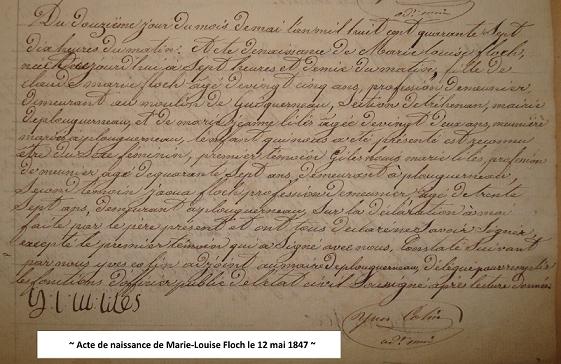 adt. mre
Du douzième jour du mois demai lan mil huit cent quarante Sept
dix heures du matin. Acte denaissance de Marie louise floch,
née aujourdhui à Sept heures et demie du matin, fille de
claude marie floch âgé devingt cinq ans, profession demeunier,
demeurant au moulin de Section detréménan, mairie
deplouguerneau, et de marie jeanne liles âgée devingt deux ans, meunière
mariés aplouguerneau, lenfant qui nous a été présenté est reconnu
être du Sexe féminin, premier temoin marie liles, profession
de munier âgé dequarante Sept ans, demeurant aplouguerneau,
Second temoin floch profession demeunier âgé de trente
Sept ans, demeurant aplouguerneau, Sur la déclaration à moi
faite par le père present et ont tous déclaré ne Savoir Signer,
excepté le premier temoin qui a Signé avec nous, Constaté Suivant
par nous yves colin adjoint aumaire deplouguerneau délégué pour remplir
les fonctions dofficier public de letat civil Soussigné après lecture donnée
liles
Yves Colin
adt. mre
~ Acte de naissance de Marie-Louise Floch le 12 mai 1847 ~